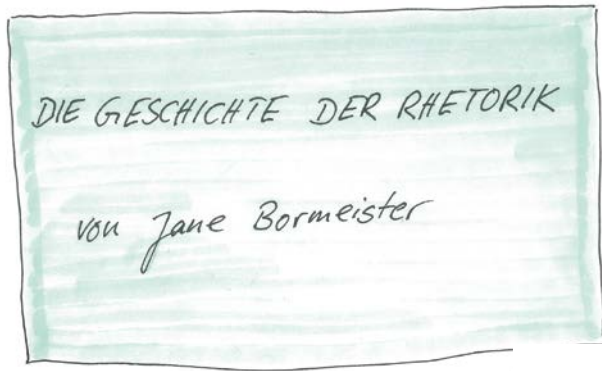 DIE GESCHICHTE DER RHETORIK
von Jane Bormeister